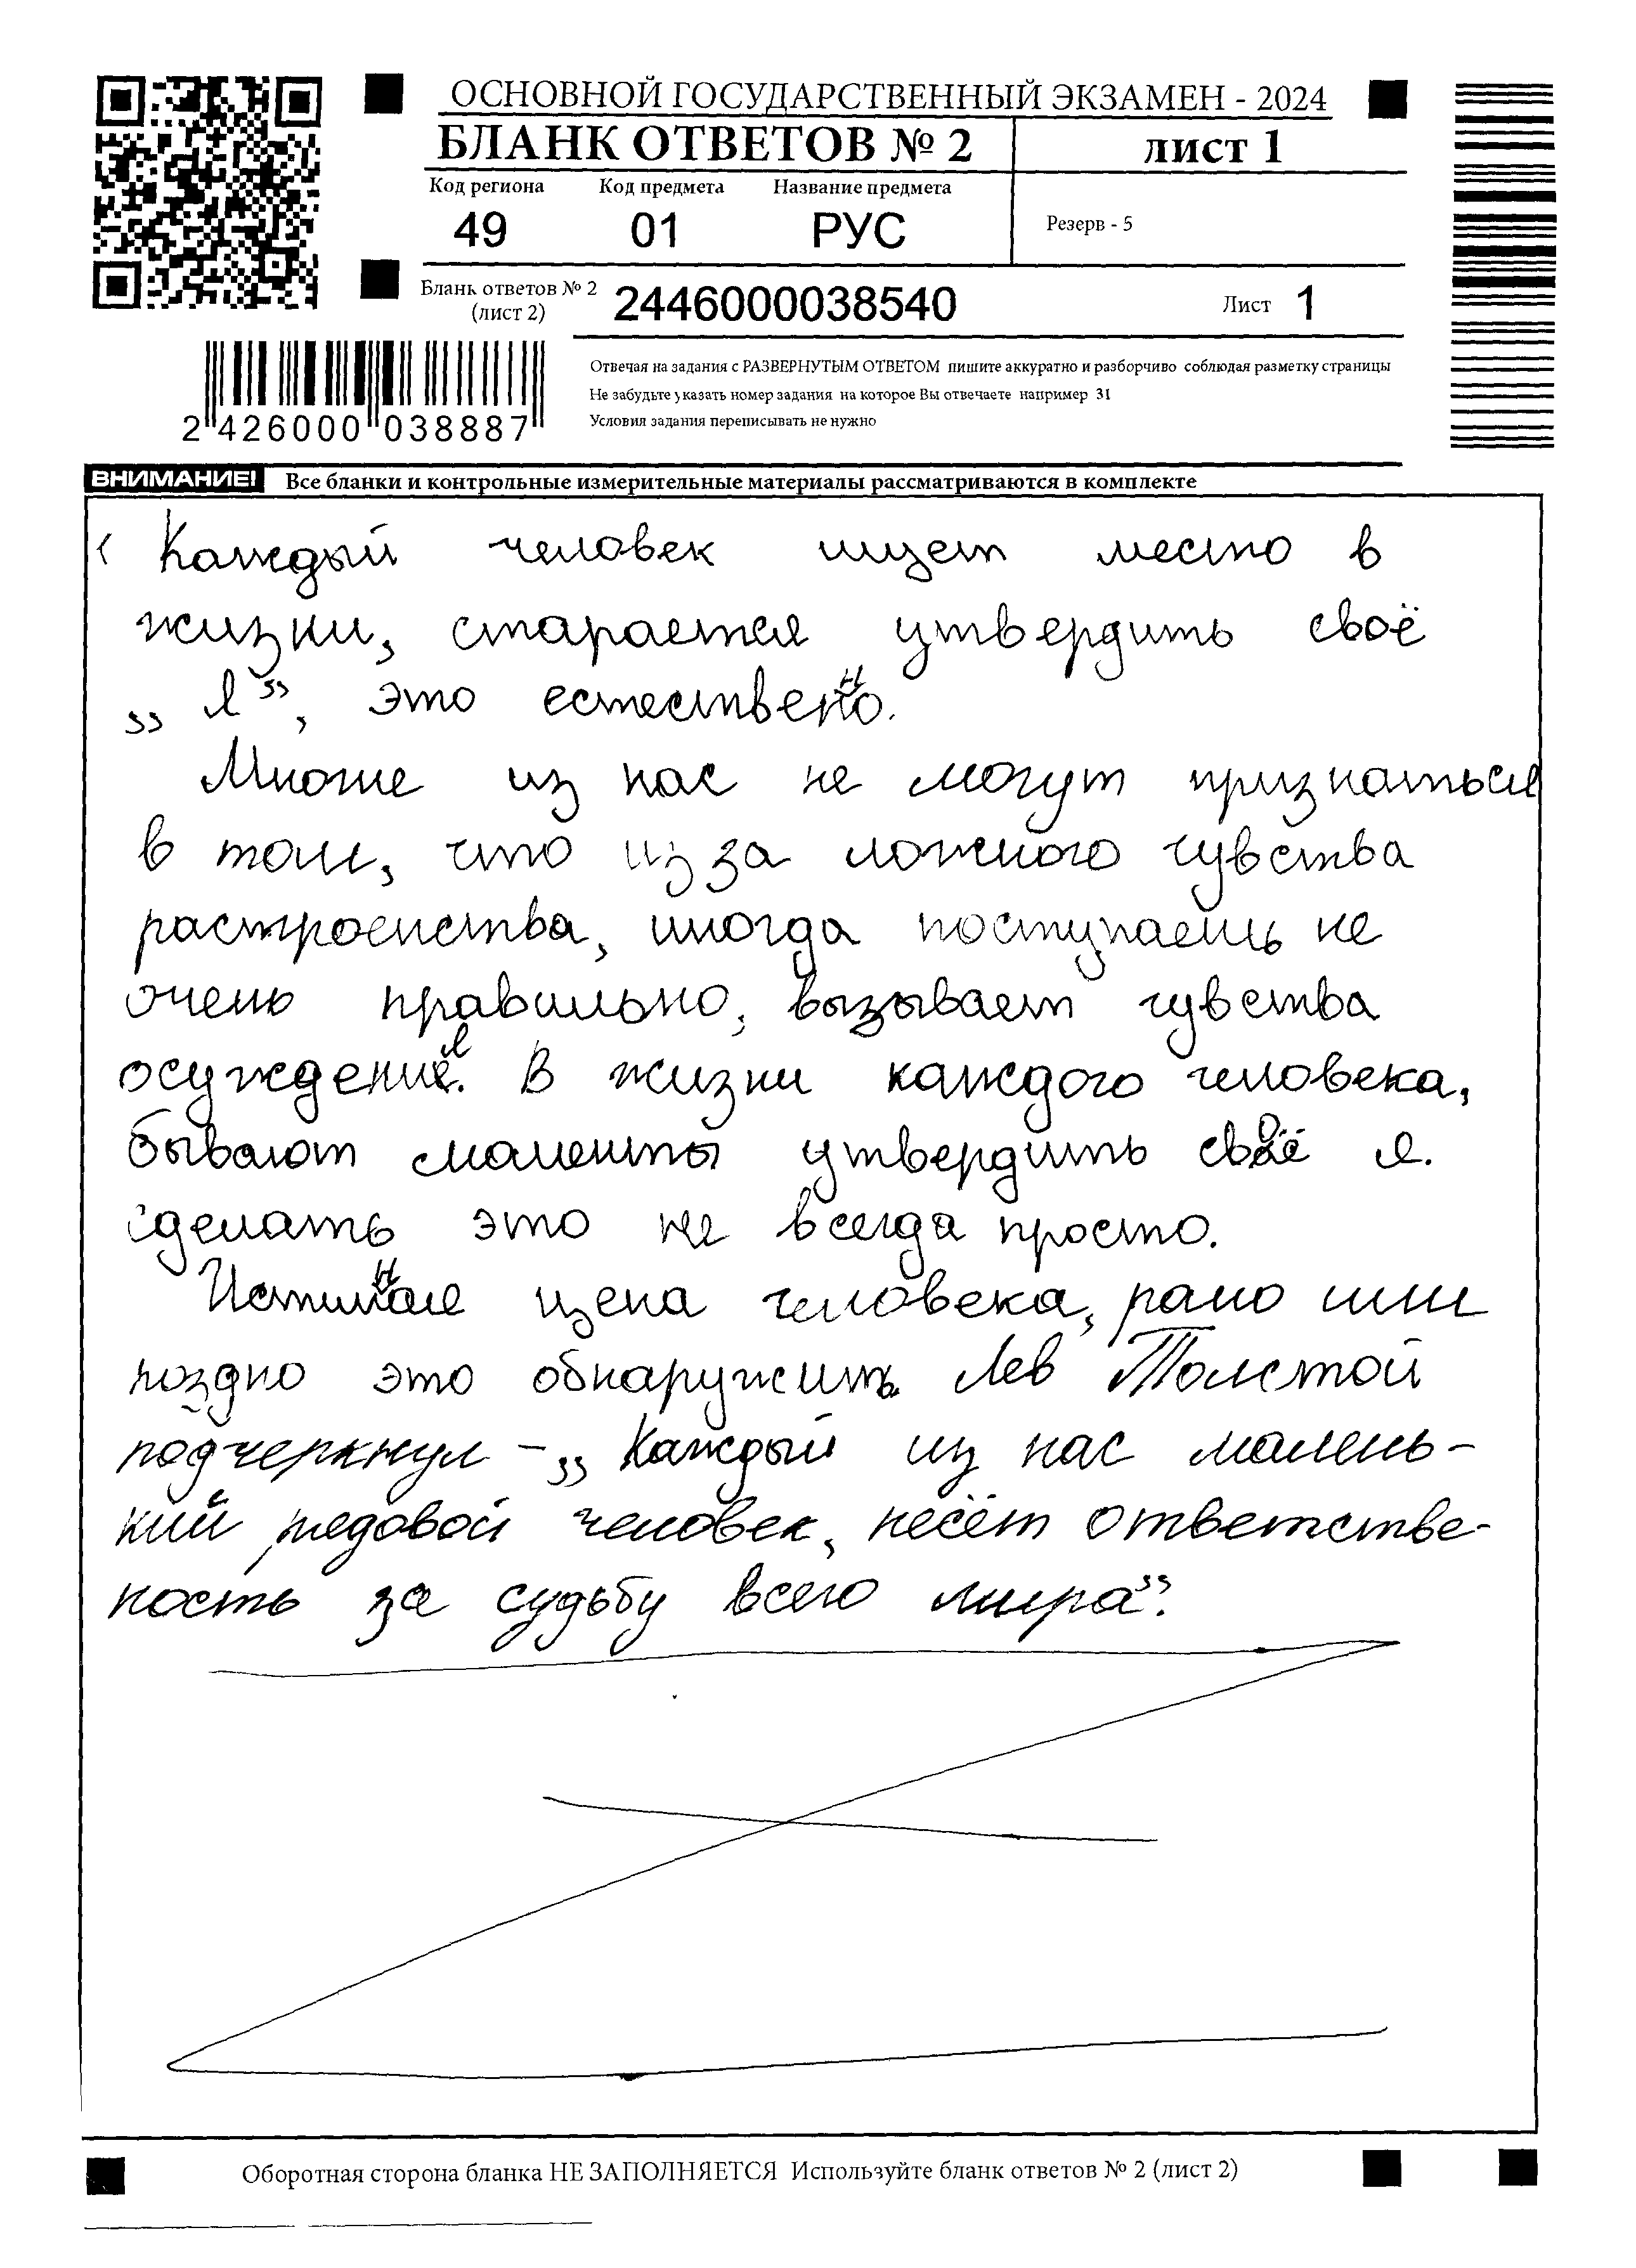 ОСНОВНОЙ ГОСУДАРСТВЕННЫЙ ЭКЗАМЕН - 2024
БЛАНК ОТВЕТОВ № 2
лист 1
Код региона Код предмета Название предмета
49 01 РУС
Резерв - 5
Бланк ответов № 2
(лист 2)
2446000038540
Лист 1
Отвечая на задания с РАЗВЕРНУТЫМ ОТВЕТОМ пишите аккуратно и разборчиво соблюдая разметку страницы
Не забудьте указать номер задания на которое Вы отвечаете например 31
Условия задания переписывать не нужно
2 426000 038887
ВНИМАНИЕ! Все бланки и контрольные измерительные материалы рассматриваются в комплекте
Каждый человек ищет место в
жизни, старается утвердить своё
„ Я”, это естественно.
Многие из нас не могут признаться
в том, что из за ложного чувства
растроенства, иногда поступаешь не
очень правильно, вызывает чувства
осуждения. В жизни каждого человека,
бывают моменты утвердить своё я.
сделать это не всегда просто.
Истинная цена человека, рано или
поздно это обнаружить. Лев Толстой
подчеркнул - „ Каждый из нас малень-
кий рядовой человек, несёт ответстве-
ность за судьбу всего мира”.
Оборотная сторона бланка НЕ ЗАПОЛНЯЕТСЯ Используйте бланк ответов № 2 (лист 2)